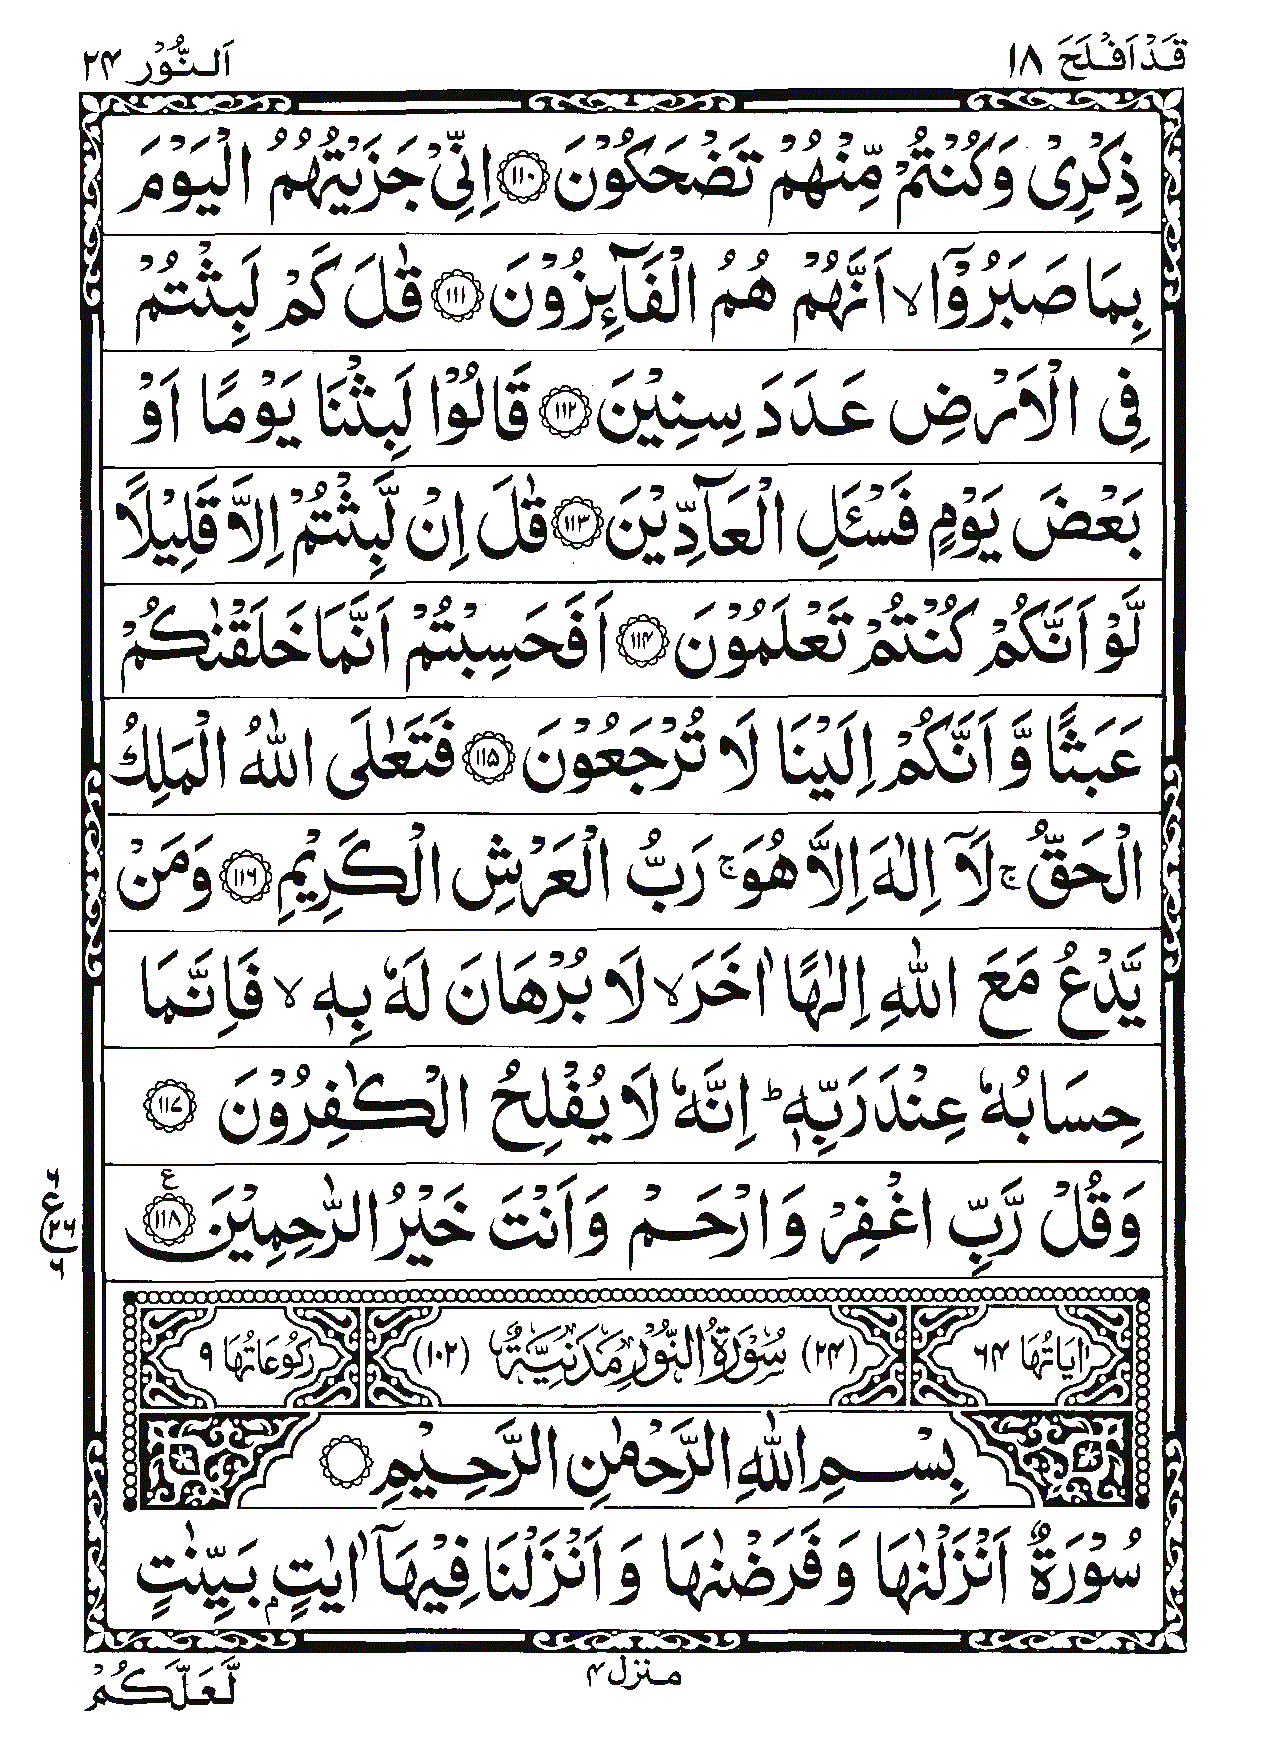 قَدْ اَفْلَحَ ۱۸
اَلنُّوْر ۲۴
ذِكْرِیْ وَكُنْتُمْ مِّنْهُمْ تَضْحَكُوْنَ ﴿۱۱۰﴾ اِنِّیْ جَزَیْتُهُمُ الْیَوْمَ
بِمَا صَبَرُوْۤا ۙ اَنَّهُمْ هُمُ الْفَآىِٕزُوْنَ ﴿۱۱۱﴾ قٰلَ كَمْ لَبِثْتُمْ
فِی الْاَرْضِ عَدَدَ سِنِیْنَ ﴿۱۱۲﴾ قَالُوْا لَبِثْنَا یَوْمًا اَوْ
بَعْضَ یَوْمٍ فَسْـَٔلِ الْعَآدِّیْنَ ﴿۱۱۳﴾ قٰلَ اِنْ لَّبِثْتُمْ اِلَّا قَلِیْلًا
لَّوْ اَنَّكُمْ كُنْتُمْ تَعْلَمُوْنَ ﴿۱۱۴﴾ اَفَحَسِبْتُمْ اَنَّمَا خَلَقْنٰكُمْ
عَبَثًا وَّ اَنَّكُمْ اِلَیْنَا لَا تُرْجَعُوْنَ ﴿۱۱۵﴾ فَتَعٰلَی اللّٰهُ الْمَلِكُ
الْحَقُّ ۚ لَاۤ اِلٰهَ اِلَّا هُوَ ۚ رَبُّ الْعَرْشِ الْكَرِیْمِ ﴿۱۱۶﴾ وَمَنْ
یَّدْعُ مَعَ اللّٰهِ اِلٰهًا اٰخَرَ ۙ لَا بُرْهَانَ لَهٗ بِهٖ ۙ فَاِنَّمَا
حِسَابُهٗ عِنْدَ رَبِّهٖ ؕ اِنَّهٗ لَا یُفْلِحُ الْكٰفِرُوْنَ ﴿۱۱۷﴾
وَقُلْ رَّبِّ اغْفِرْ وَارْحَمْ وَاَنْتَ خَیْرُ الرّٰحِمِیْنَ ﴿۱۱۸﴾ ع
ع ۶ ۲۶ ۶
اٰیَاتُهَا ۶۴ (۲۴) سُوْرَةُ النُّوْرِ مَدَنِیَّةٌ (۱۰۲) رُكُوْعَاتُهَا ۹
بِسْمِ اللّٰهِ الرَّحْمٰنِ الرَّحِیْمِ
سُوْرَةٌ اَنْزَلْنٰهَا وَفَرَضْنٰهَا وَ اَنْزَلْنَا فِیْهَاۤ اٰیٰتٍۭ بَیِّنٰتٍ
منزل ۴
لَّعَلَّكُمْ